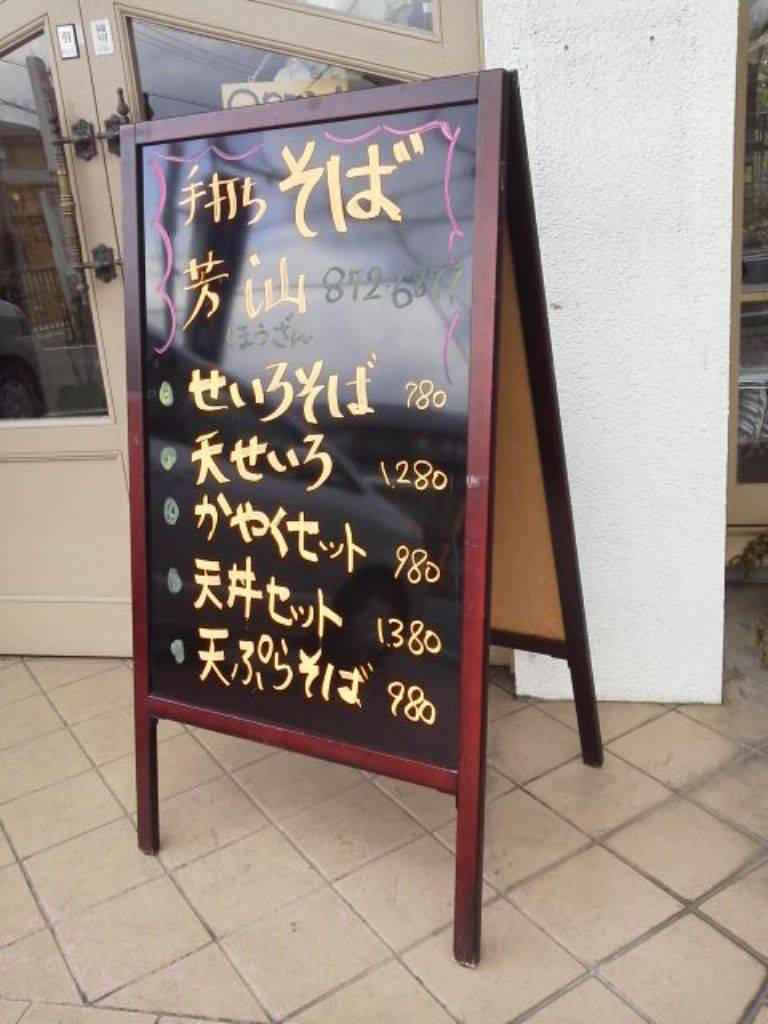 手打ち そば
芳汕 872-6877
ほうざん
せいろそば 780
天せいろ 1,280
かやくセット 980
天丼セット 1,380
天ぷらそば 980